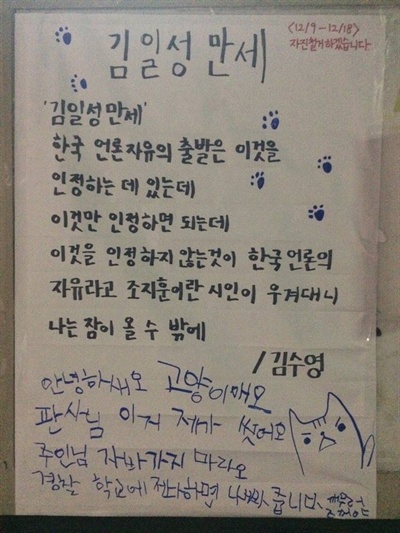 <12/9-12/18>
자진철거하겠습니다.
김일성 만세
'김일성만세'
한국 언론자유의 출발은 이것을
인정하는 데 있는데
이것만 인정하면 되는데
이것을 인정하지 않는것이 한국언론의
자유라고 조지훈이란 시인이 우겨대니
나는 잠이 올 수 밖에
/김수영
안녕하새오 고양이애오
판사님 이거 제가 썻어오
주인님 자바가지 마라오
경찰 학교에 전다하면 나빠 줍니다